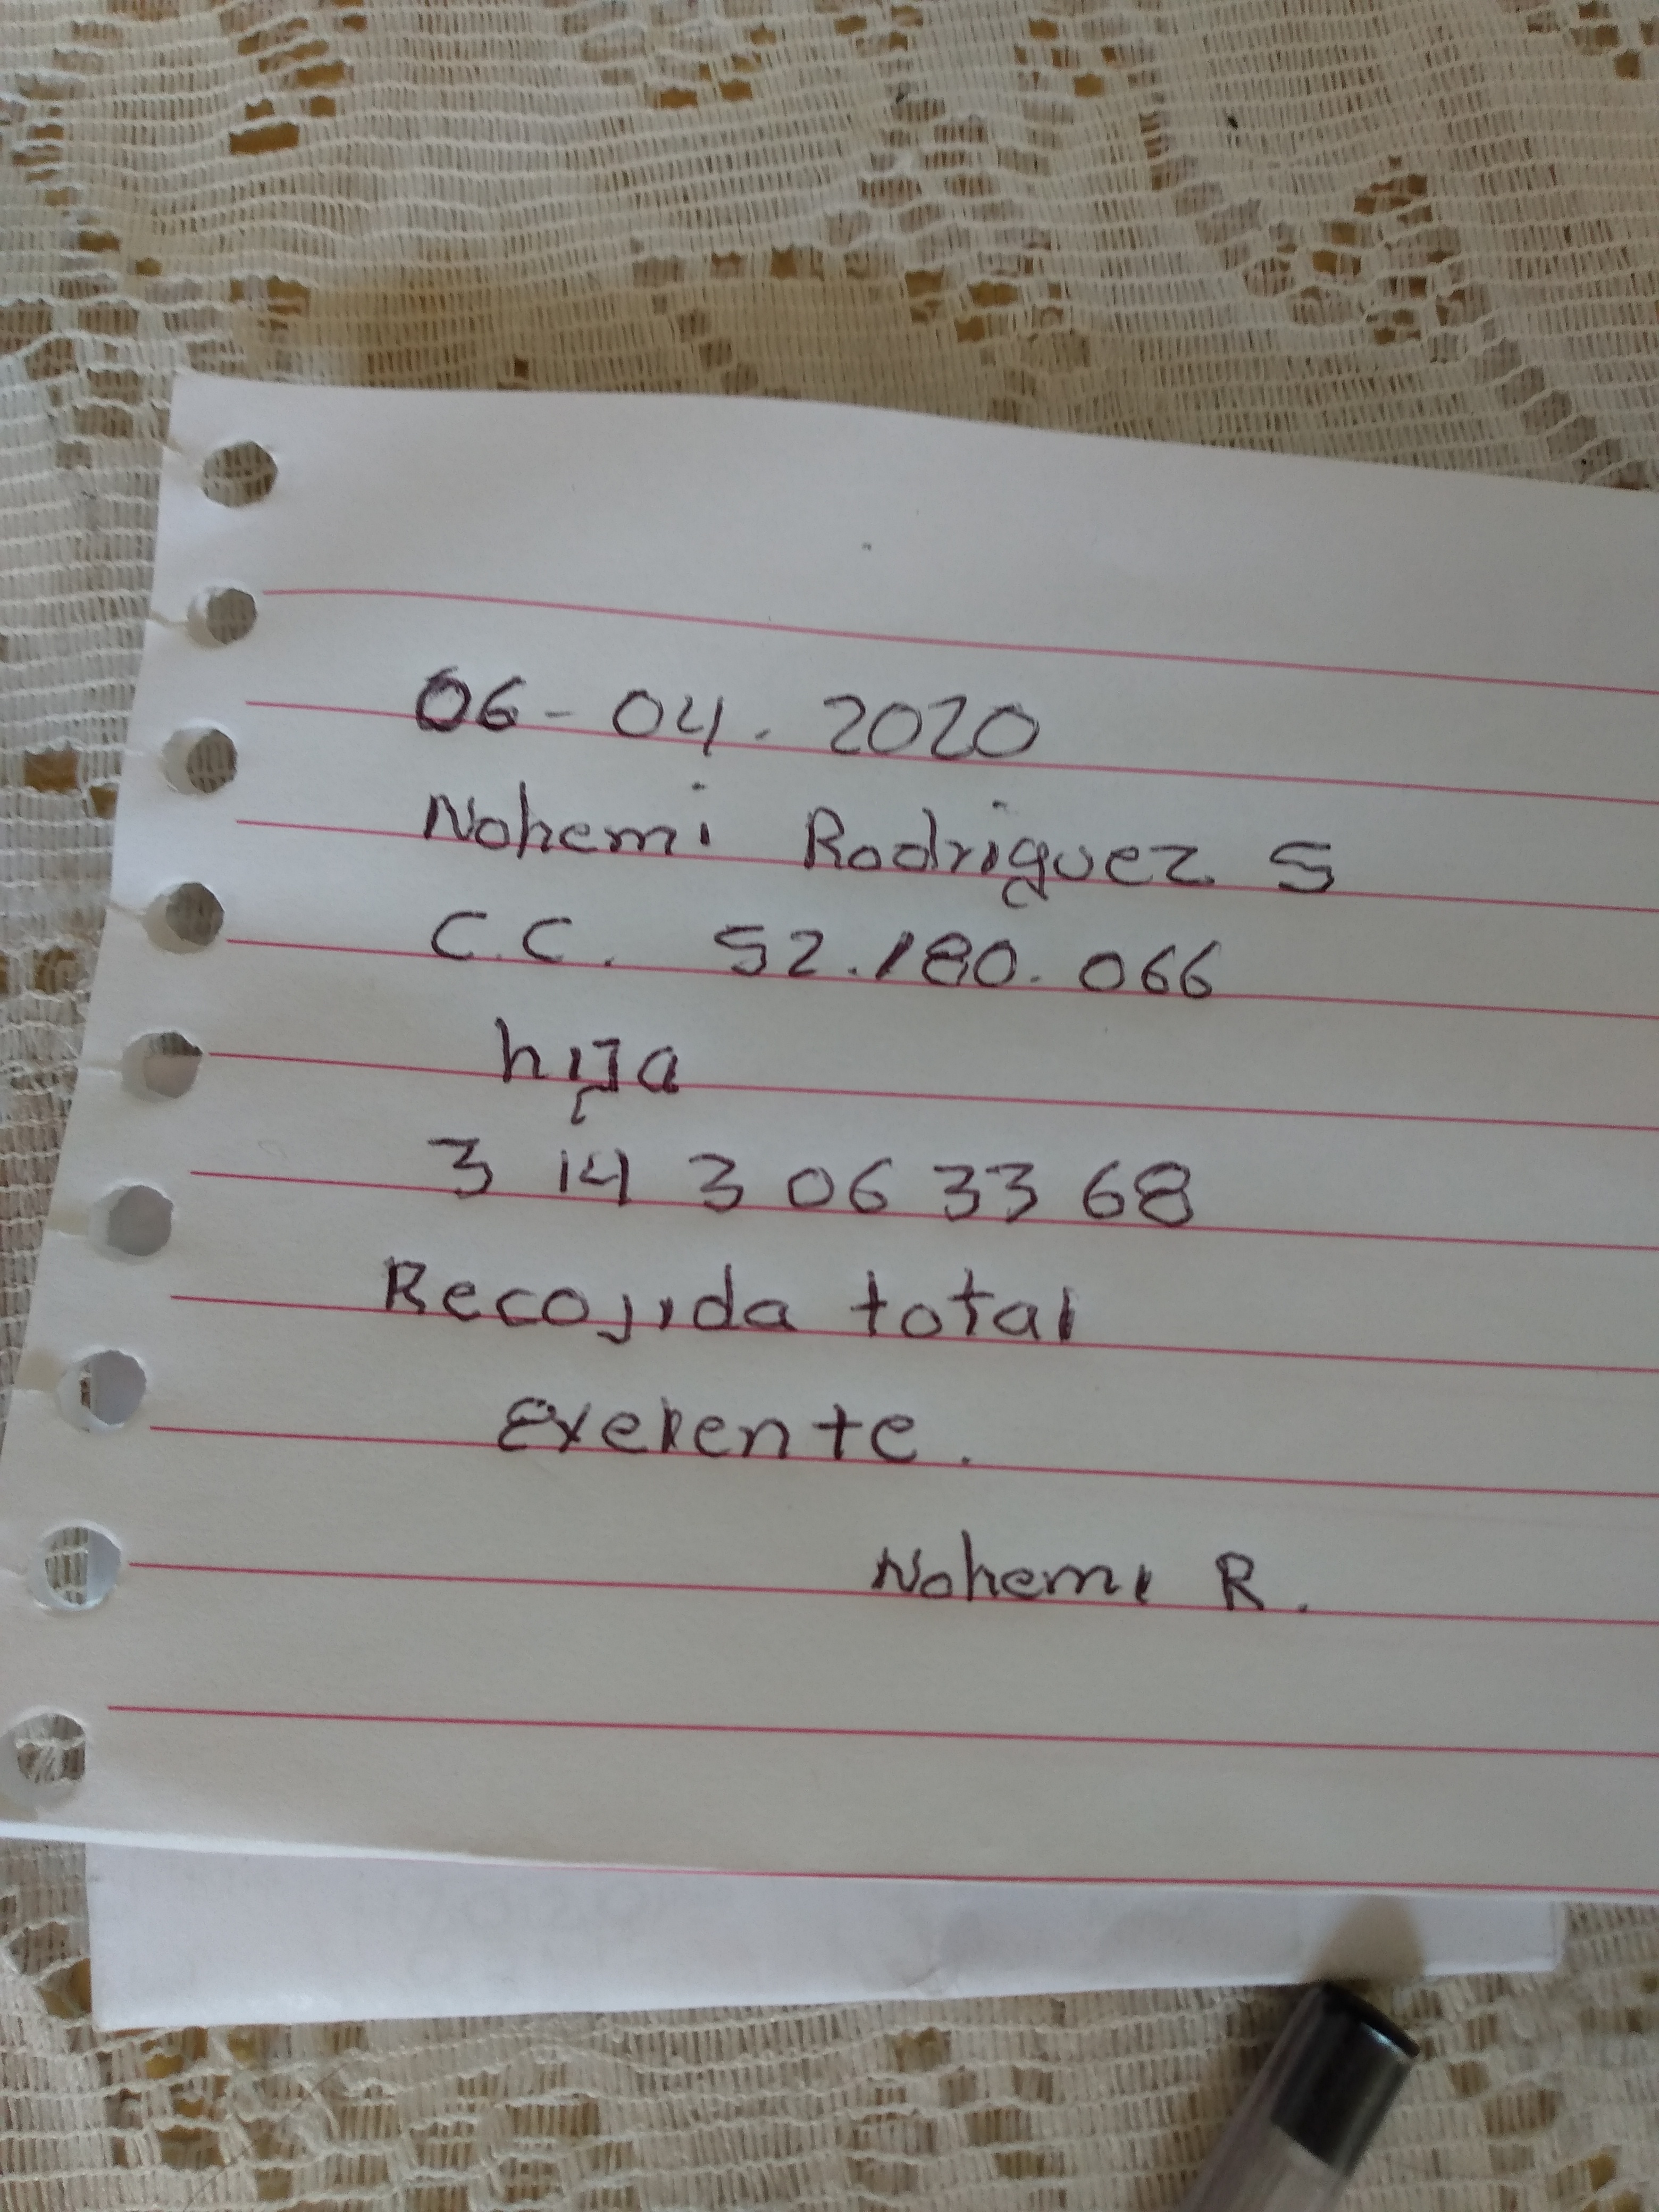 06-04.2020
Nohemi Rodriguez S
C.C. 52.180.066
hija
3 14 3 06 33 68
Recojida total
Exelente.
Nohemi R.